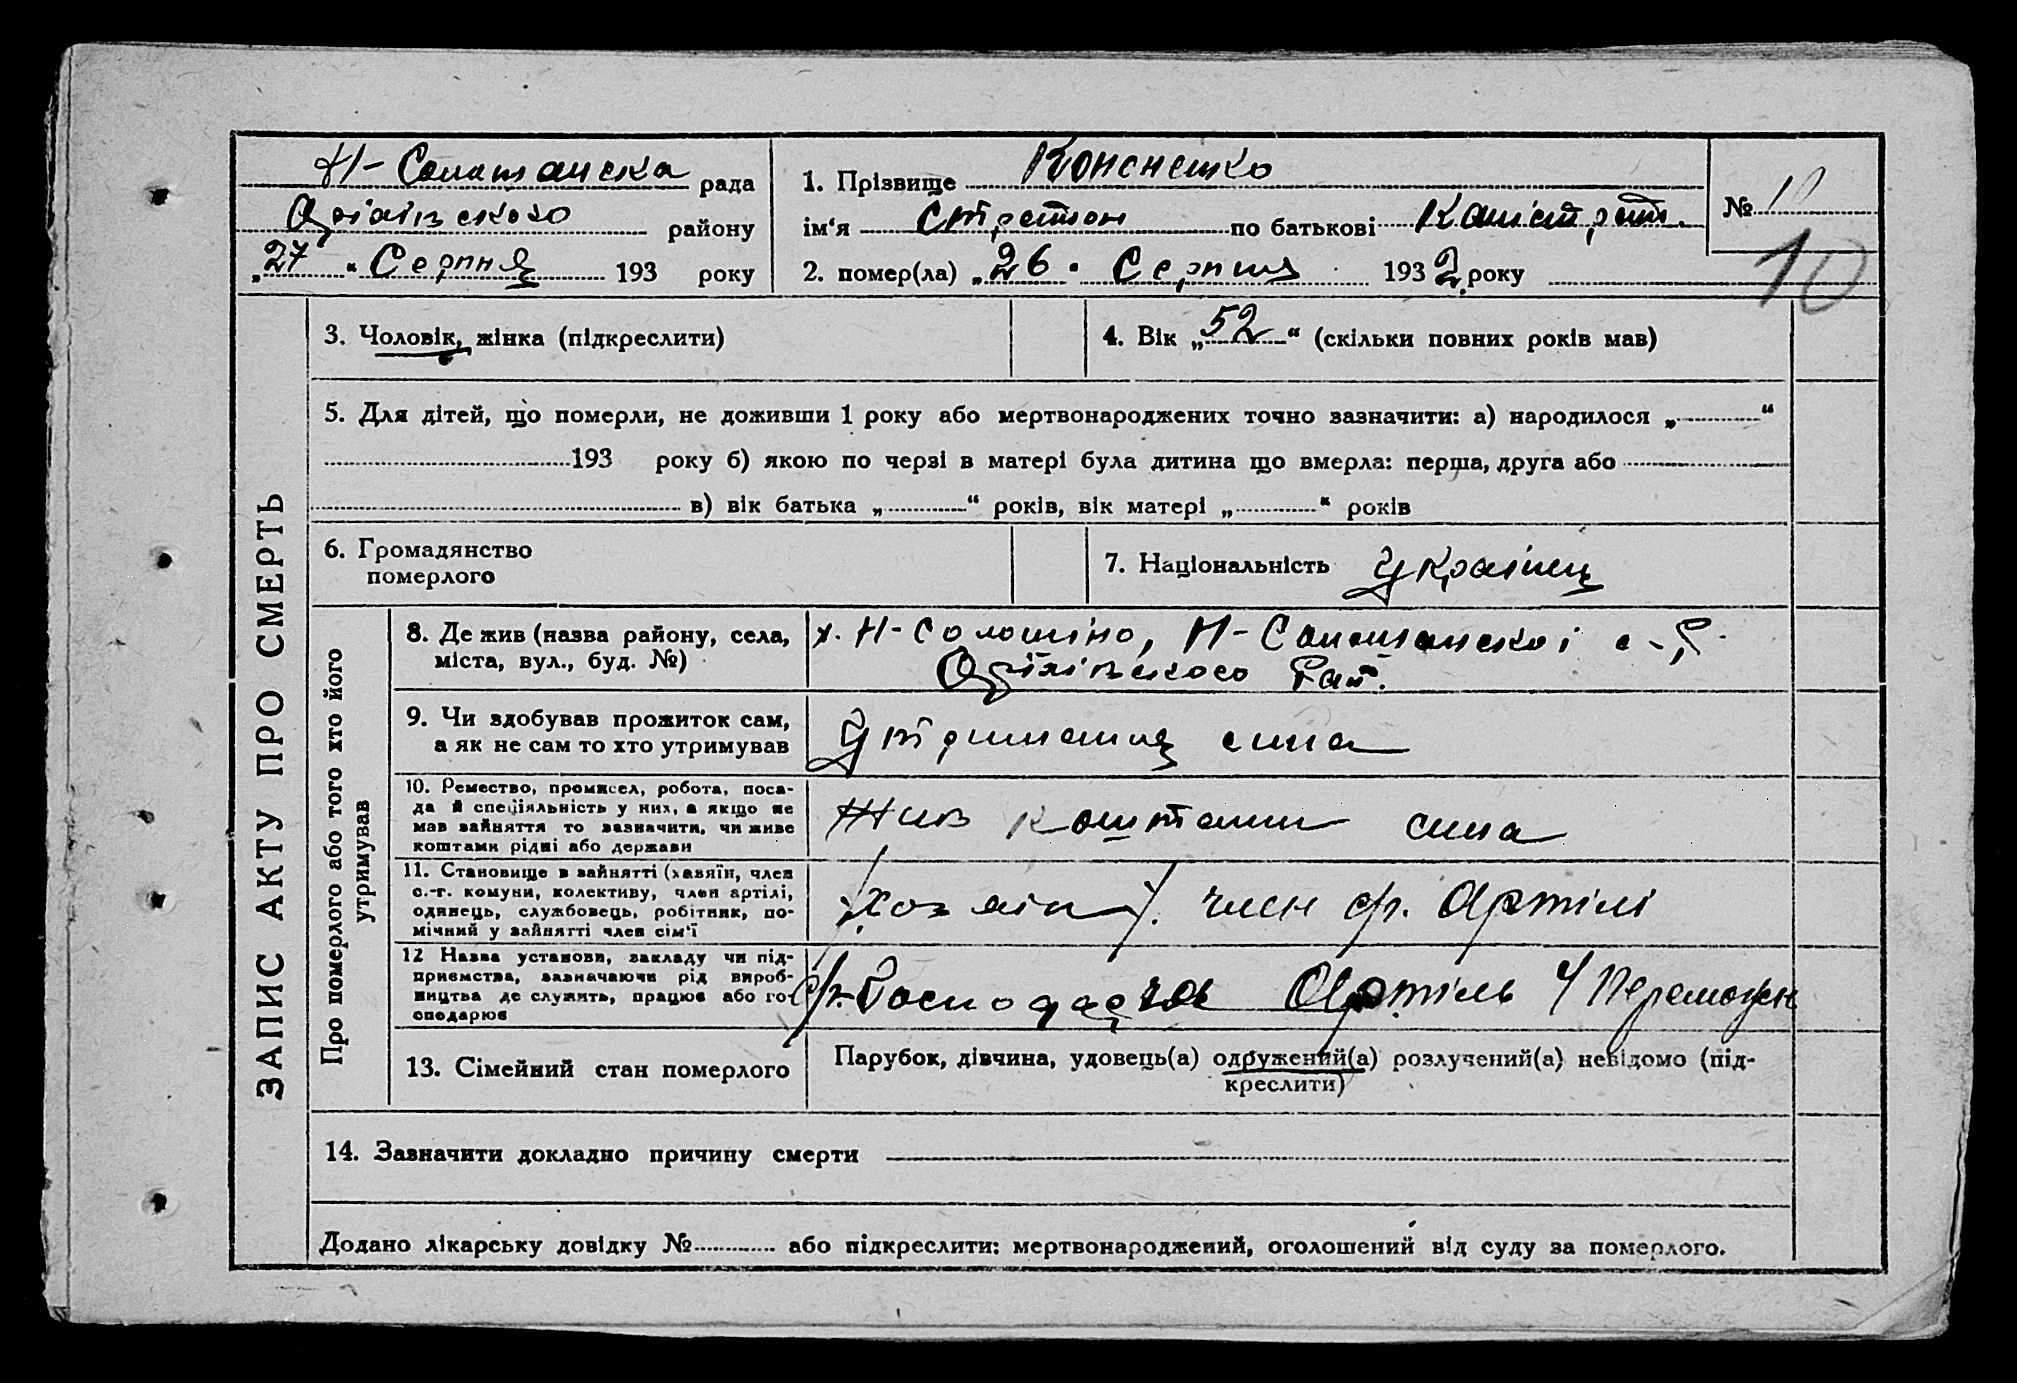 Н-Солошанска рада
району
„27“ Серпня 193 року
1. Прізвище Кононенко
ім‘я по батькові Калістрат.
2. помер(ла) „26“ Серпня 1932 року
№
10
ЗАПИС АКТУ ПРО СМЕРТЬ
3. Чоловік, жінка (підкреслити)
4. Вік „52“ (скільки повних років мав)
5. Для дітей, що померли, не доживши 1 року або мертвонароджених точно зазначити: а) народилося „ “
193 року б) якою по черзі в матері була дитина що вмерла: перша, друга або
в) вік батька „ “ років, вік матері „ “ років
6. Громадянство
померлого
7. Національність Українець
Про померлого або того хто його
утримував
8. Де жив (назва району, села,
міста, вул., буд. №)
х. Н-Солошіно, Н-Солошанскоі с-р.
Рай.
9. Чи здобував прожиток сам,
а як не сам то хто утримував
Утриманец сина
10. Ремество, промисел, робота, поса-
да й спеціяльність у них, а якщо не
мав зайняття то зазначити, чи живе
коштами рідні або держави
Жив коштами сина
11. Становище в зайнятті (хазяїн, член
с.-г. комуни, колективу, член артілі,
одинець, службовець, робітник, по-
мічний у зайнятті член сім‘ї
/хозяін/. член с/г. Артілі
12 Назва установи, закладу чи під-
приємства, зазначаючи рід вироб-
ництва де служить, працює або го-
сподарює
с/г. Артіль
13. Сімейний стан померлого
Парубок, дівчина, удовець(а) одружений(а) розлучений(а) невідомо (під-
креслити)
14. Зазначити докладно причину смерти
Додано лікарську довідку № або підкреслити: мертвонароджений, оголошений від суду за померлого.